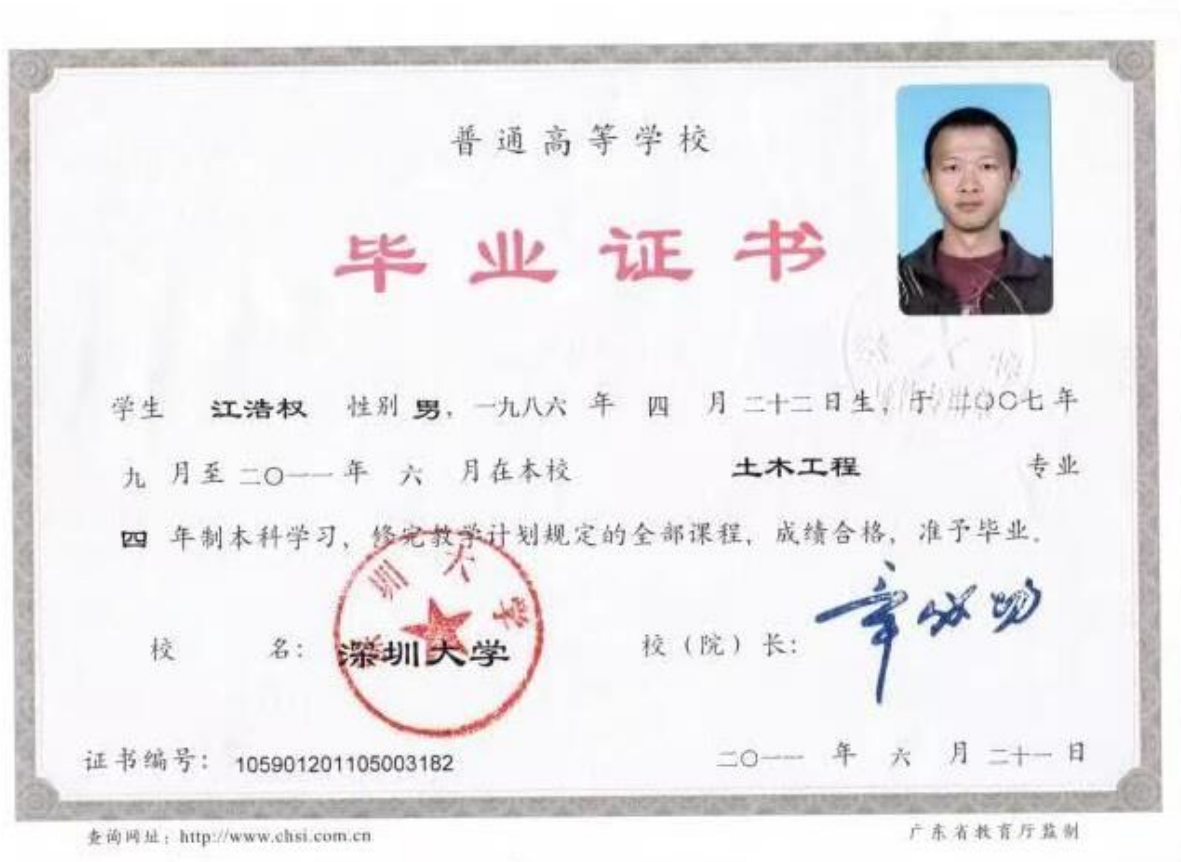 普通高等学校
毕业证书
学生 江浩权 性别 男，一九八六 年 四 月 二十二 日生，于 二〇〇七 年
九 月至 二〇一一 年 六 月在本校 土木工程 专业
四 年制本科学习，修完教学计划规定的全部课程，成绩合格，准予毕业。
深圳大学
校 名： 深圳大学 校（院）长： 章必功
证书编号： 105901201105003182 二〇一一 年 六 月 二十一 日
查询网址：http://www.chsi.com.cn 广东省教育厅监制